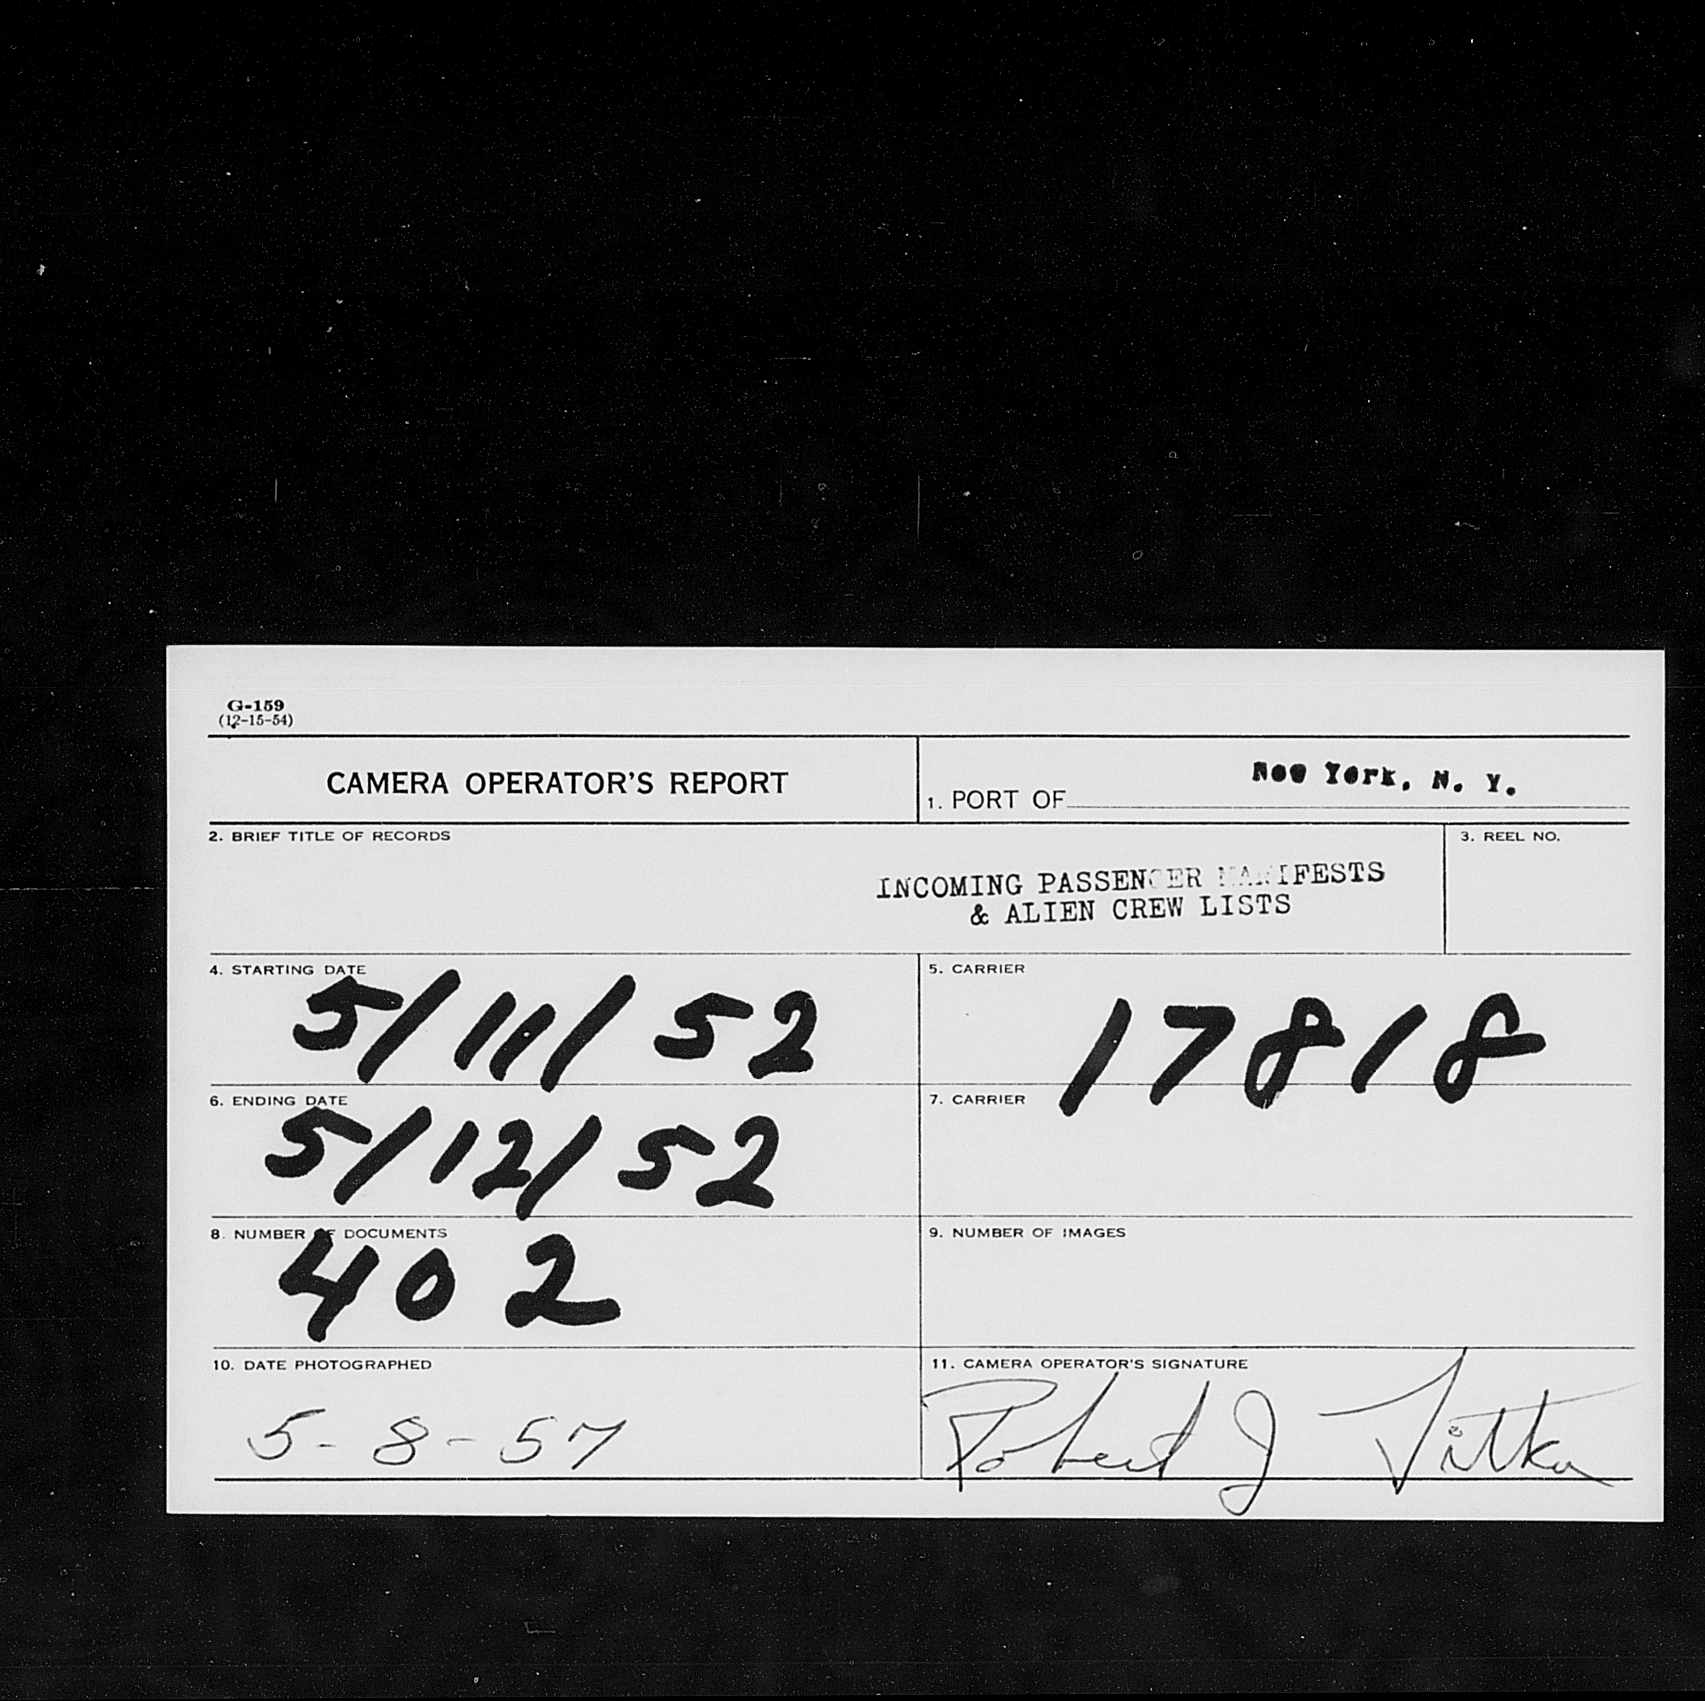 G-159
(12-15-54)
CAMERA OPERATOR'S REPORT
1. PORT OF New York, N. Y.
2. BRIEF TITLE OF RECORDS
INCOMING PASSENGER MANIFESTS
& ALIEN CREW LISTS
3. REEL NO.
4. STARTING DATE
5/11/52
5. CARRIER
17818
6. ENDING DATE
5/12/52
7. CARRIER
8. NUMBER OF DOCUMENTS
402
9. NUMBER OF IMAGES
10. DATE PHOTOGRAPHED
5-8-57
11. CAMERA OPERATOR'S SIGNATURE
Robert J